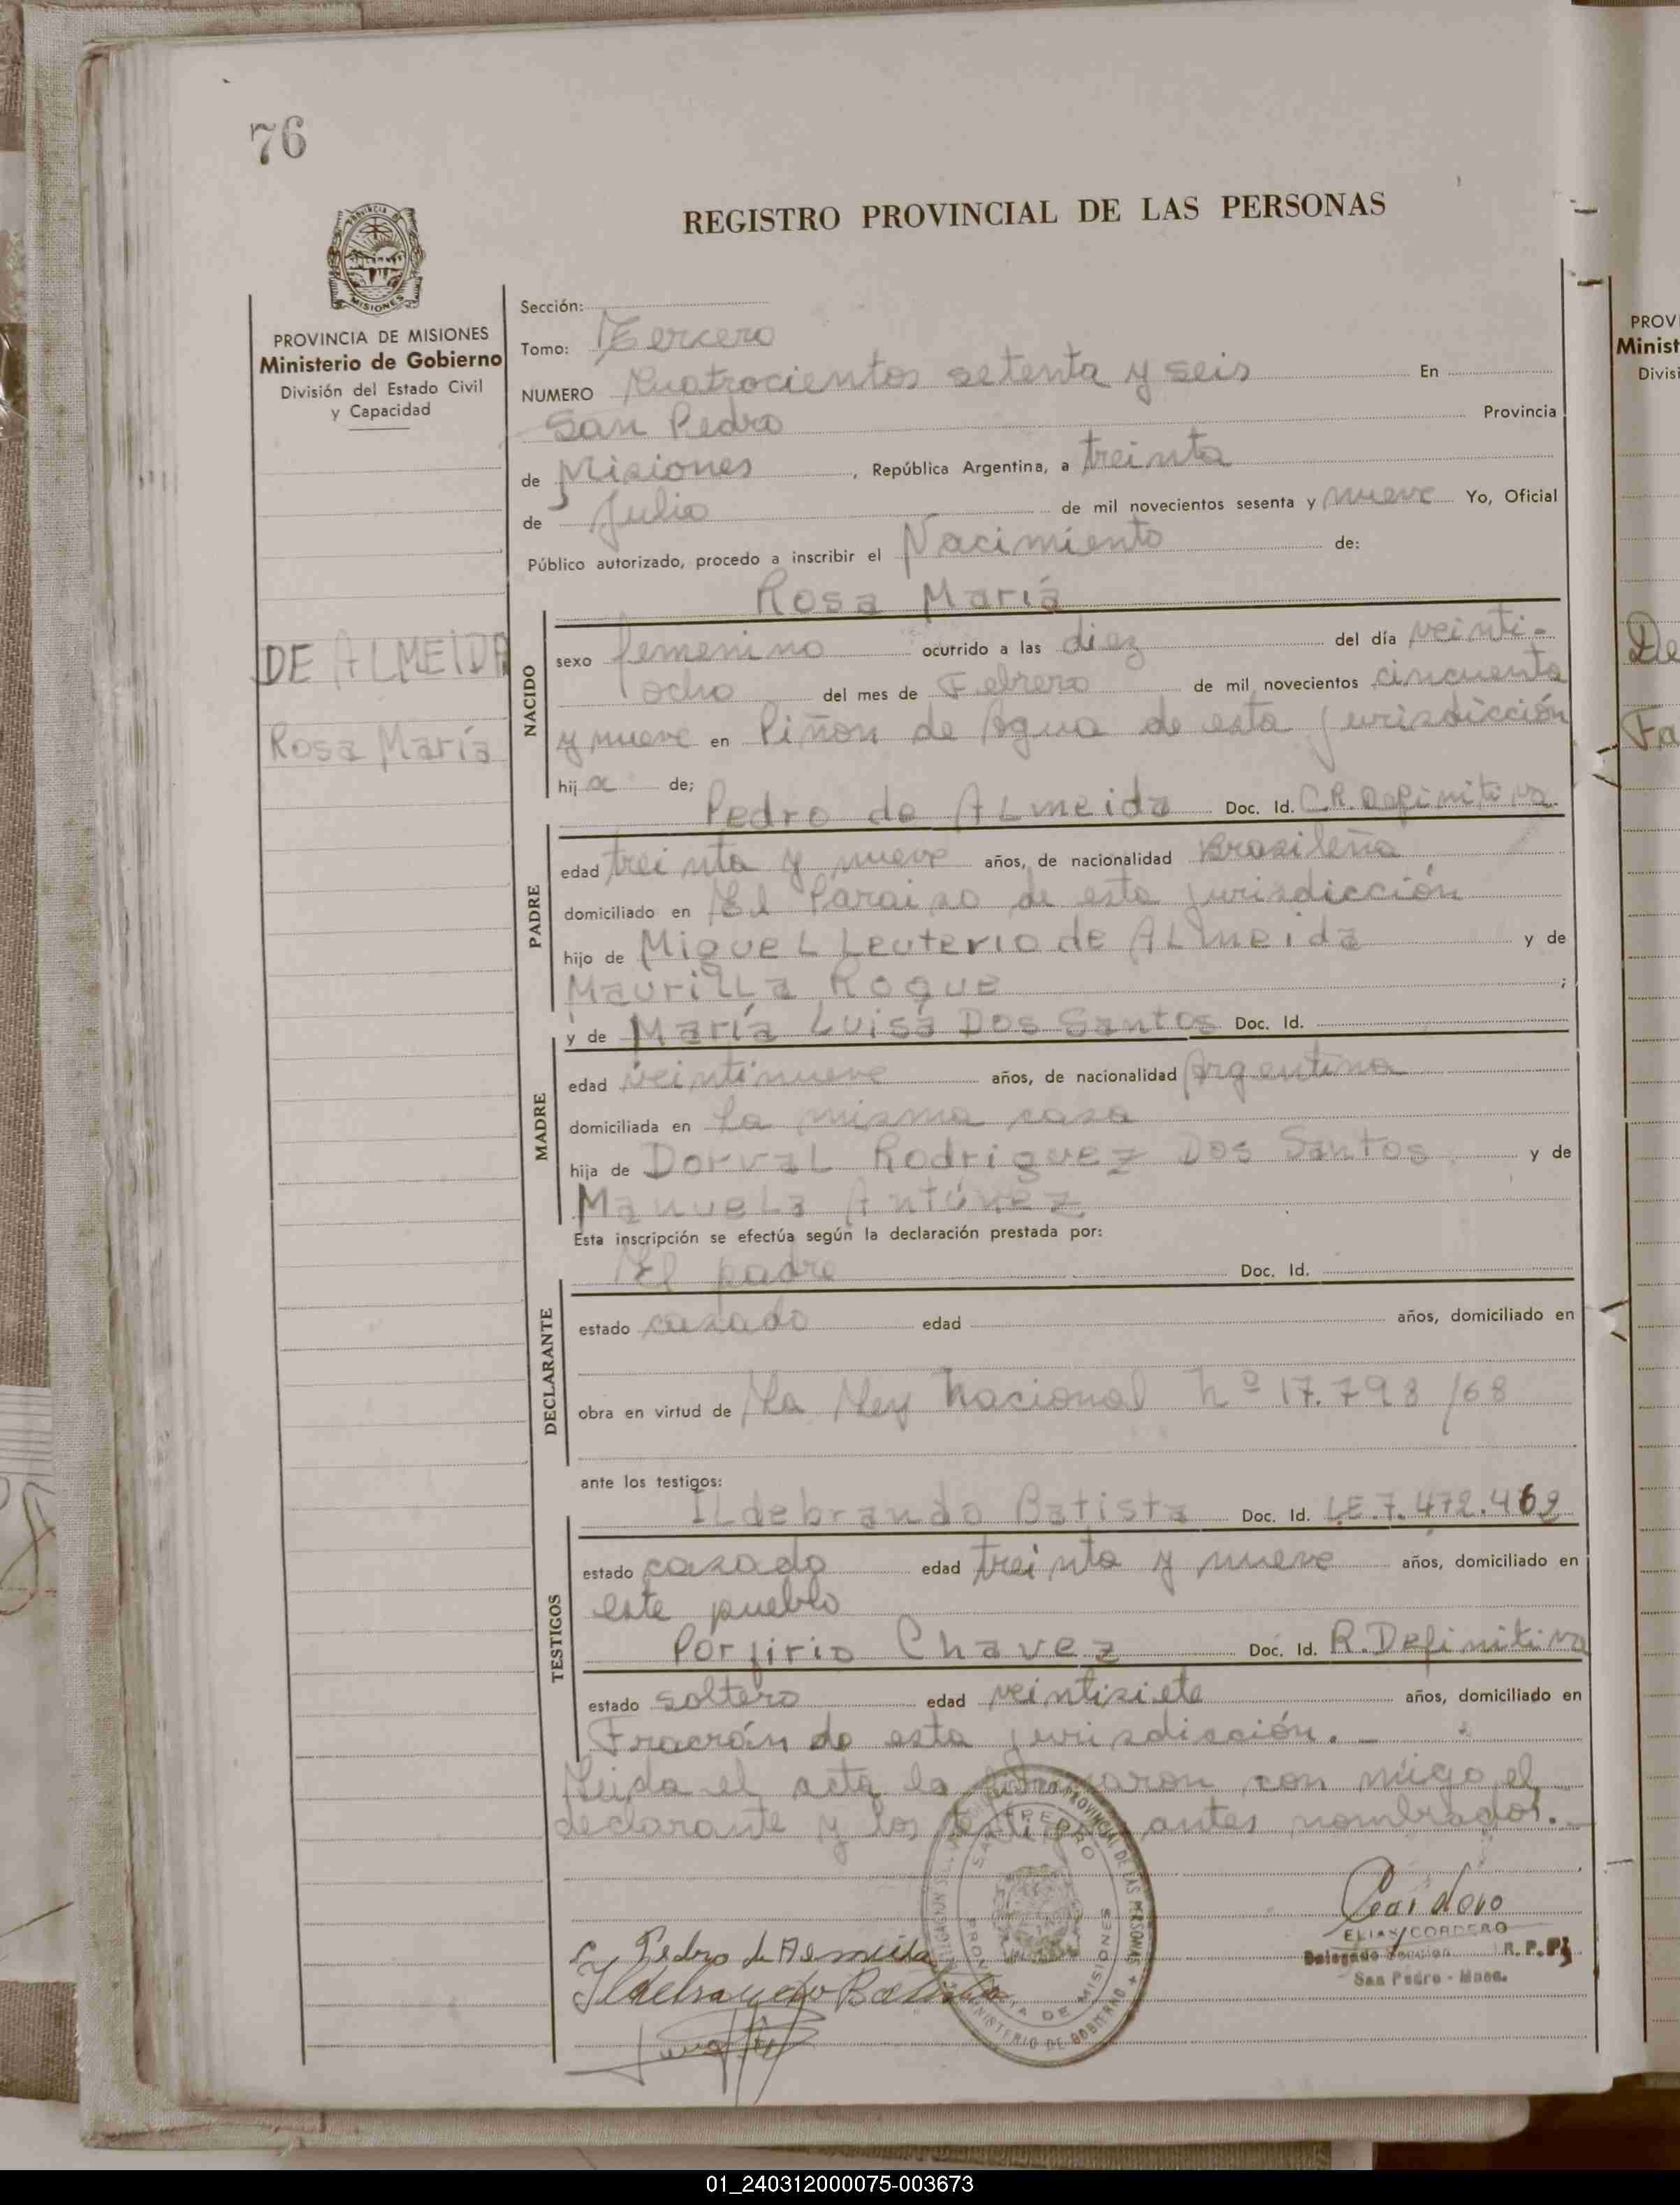 76
REGISTRO PROVINCIAL DE LAS PERSONAS
PROVINCIA DE MISIONES
Ministerio de Gobierno
División del Estado Civil
y Capacidad
DE ALMEIDA
Rosa María
Sección:
Tomo: Tercero
NUMERO Cuatrocientos setenta y seis En
San Pedro Provincia
de Misiones, República Argentina, a treinta
de Julio de mil novecientos sesenta y nueve Yo, Oficial
Público autorizado, procedo a inscribir el Nacimiento de:
Rosa María
NACIDO
sexo femenino ocurrido a las diez del día veinti-
ocho del mes de Febrero de mil novecientos cincuenta
y nueve en Piñon de Agua de esta jurisdicción
hija de;
Pedro de ALmeida Doc. Id. C.R. Definitiva
PADRE
edad treinta y nueve años, de nacionalidad Brasileña
domiciliado en El Paraiso de esta jurisdicción
hijo de Miguel Leuterio de ALmeida y de
MauriLLa Roque ;
y de María Luisa Dos Santos Doc. Id.
MADRE
edad veintinueve años, de nacionalidad Argentina
domiciliada en la misma casa
hija de Dorval Rodriguez Dos Santos y de
Manuela Antúnez
Esta inscripción se efectúa según la declaración prestada por:
El padre Doc. Id.
DECLARANTE
estado casado edad años, domiciliado en
obra en virtud de La Ley Nacional Nº 17.793/68
ante los testigos:
ILdebrando Batista Doc. Id. L.E. 7.472.469
TESTIGOS
estado casado edad treinta y nueve años, domiciliado en
este pueblo
Porfirio Chavez Doc. Id. R. Definitiva
estado soltero edad veintisiete años, domiciliado en
Fracrán de esta jurisdicción.-
Leida el acta la firmaron con migo el
declarante y los testigos antes nombrados.-
SAN PEDRO
PROVINCIAL DE LAS PERSONAS
MINISTERIO DE GOBIERNO
PROVINCIA DE MISIONES
Pedro de Almeida
Ildebrando Batista
ELIAS CORDERO
Delegado Sección R. P. P.
San Pedro - Mnes.
PROVI
Minist
Divisi
De
Fa
01_240312000075-003673